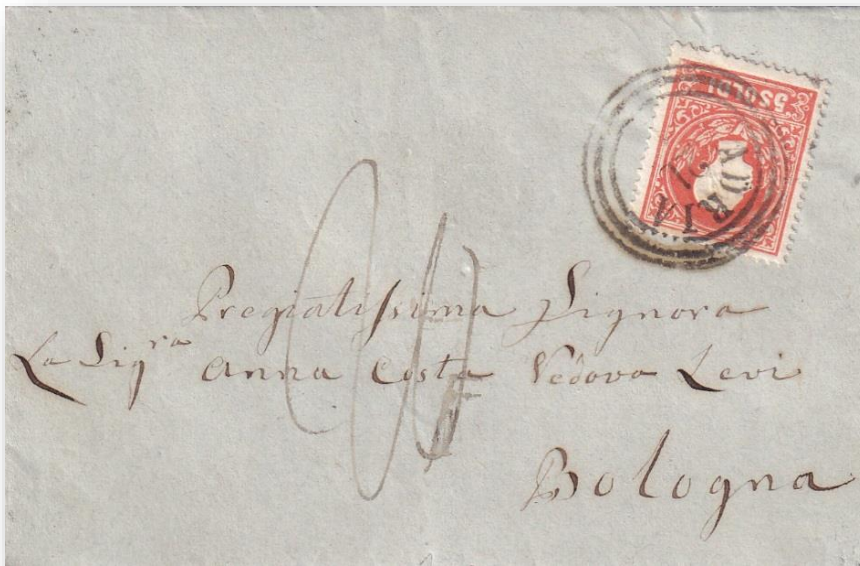 5 SOLDI
ADRIA
Pregiatissima Signora
La Sig.ra Anna Costa Vedova Levi
Bologna